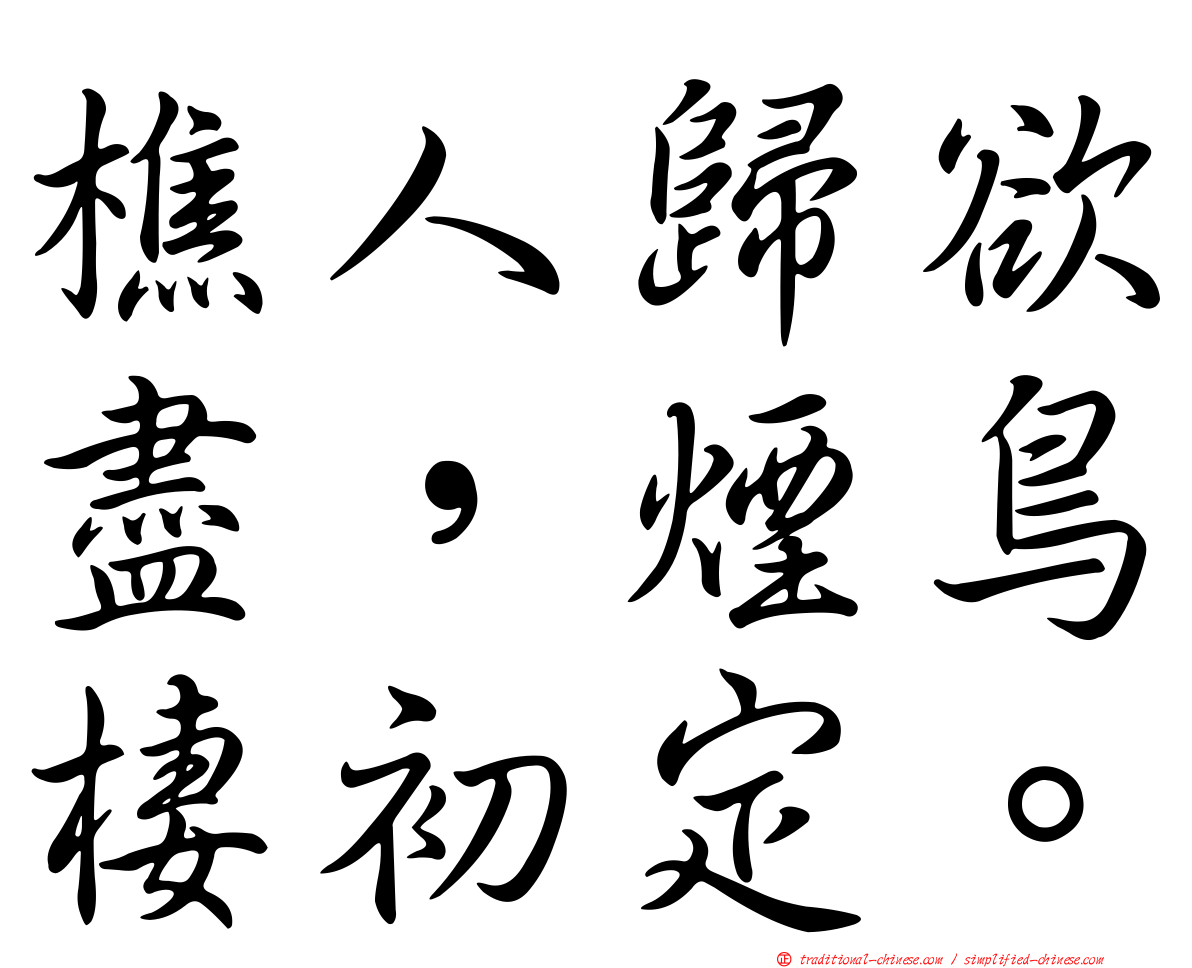 樵人歸欲
盡，煙鳥
棲初定。
正 traditional-chinese.com / simplified-chinese.com